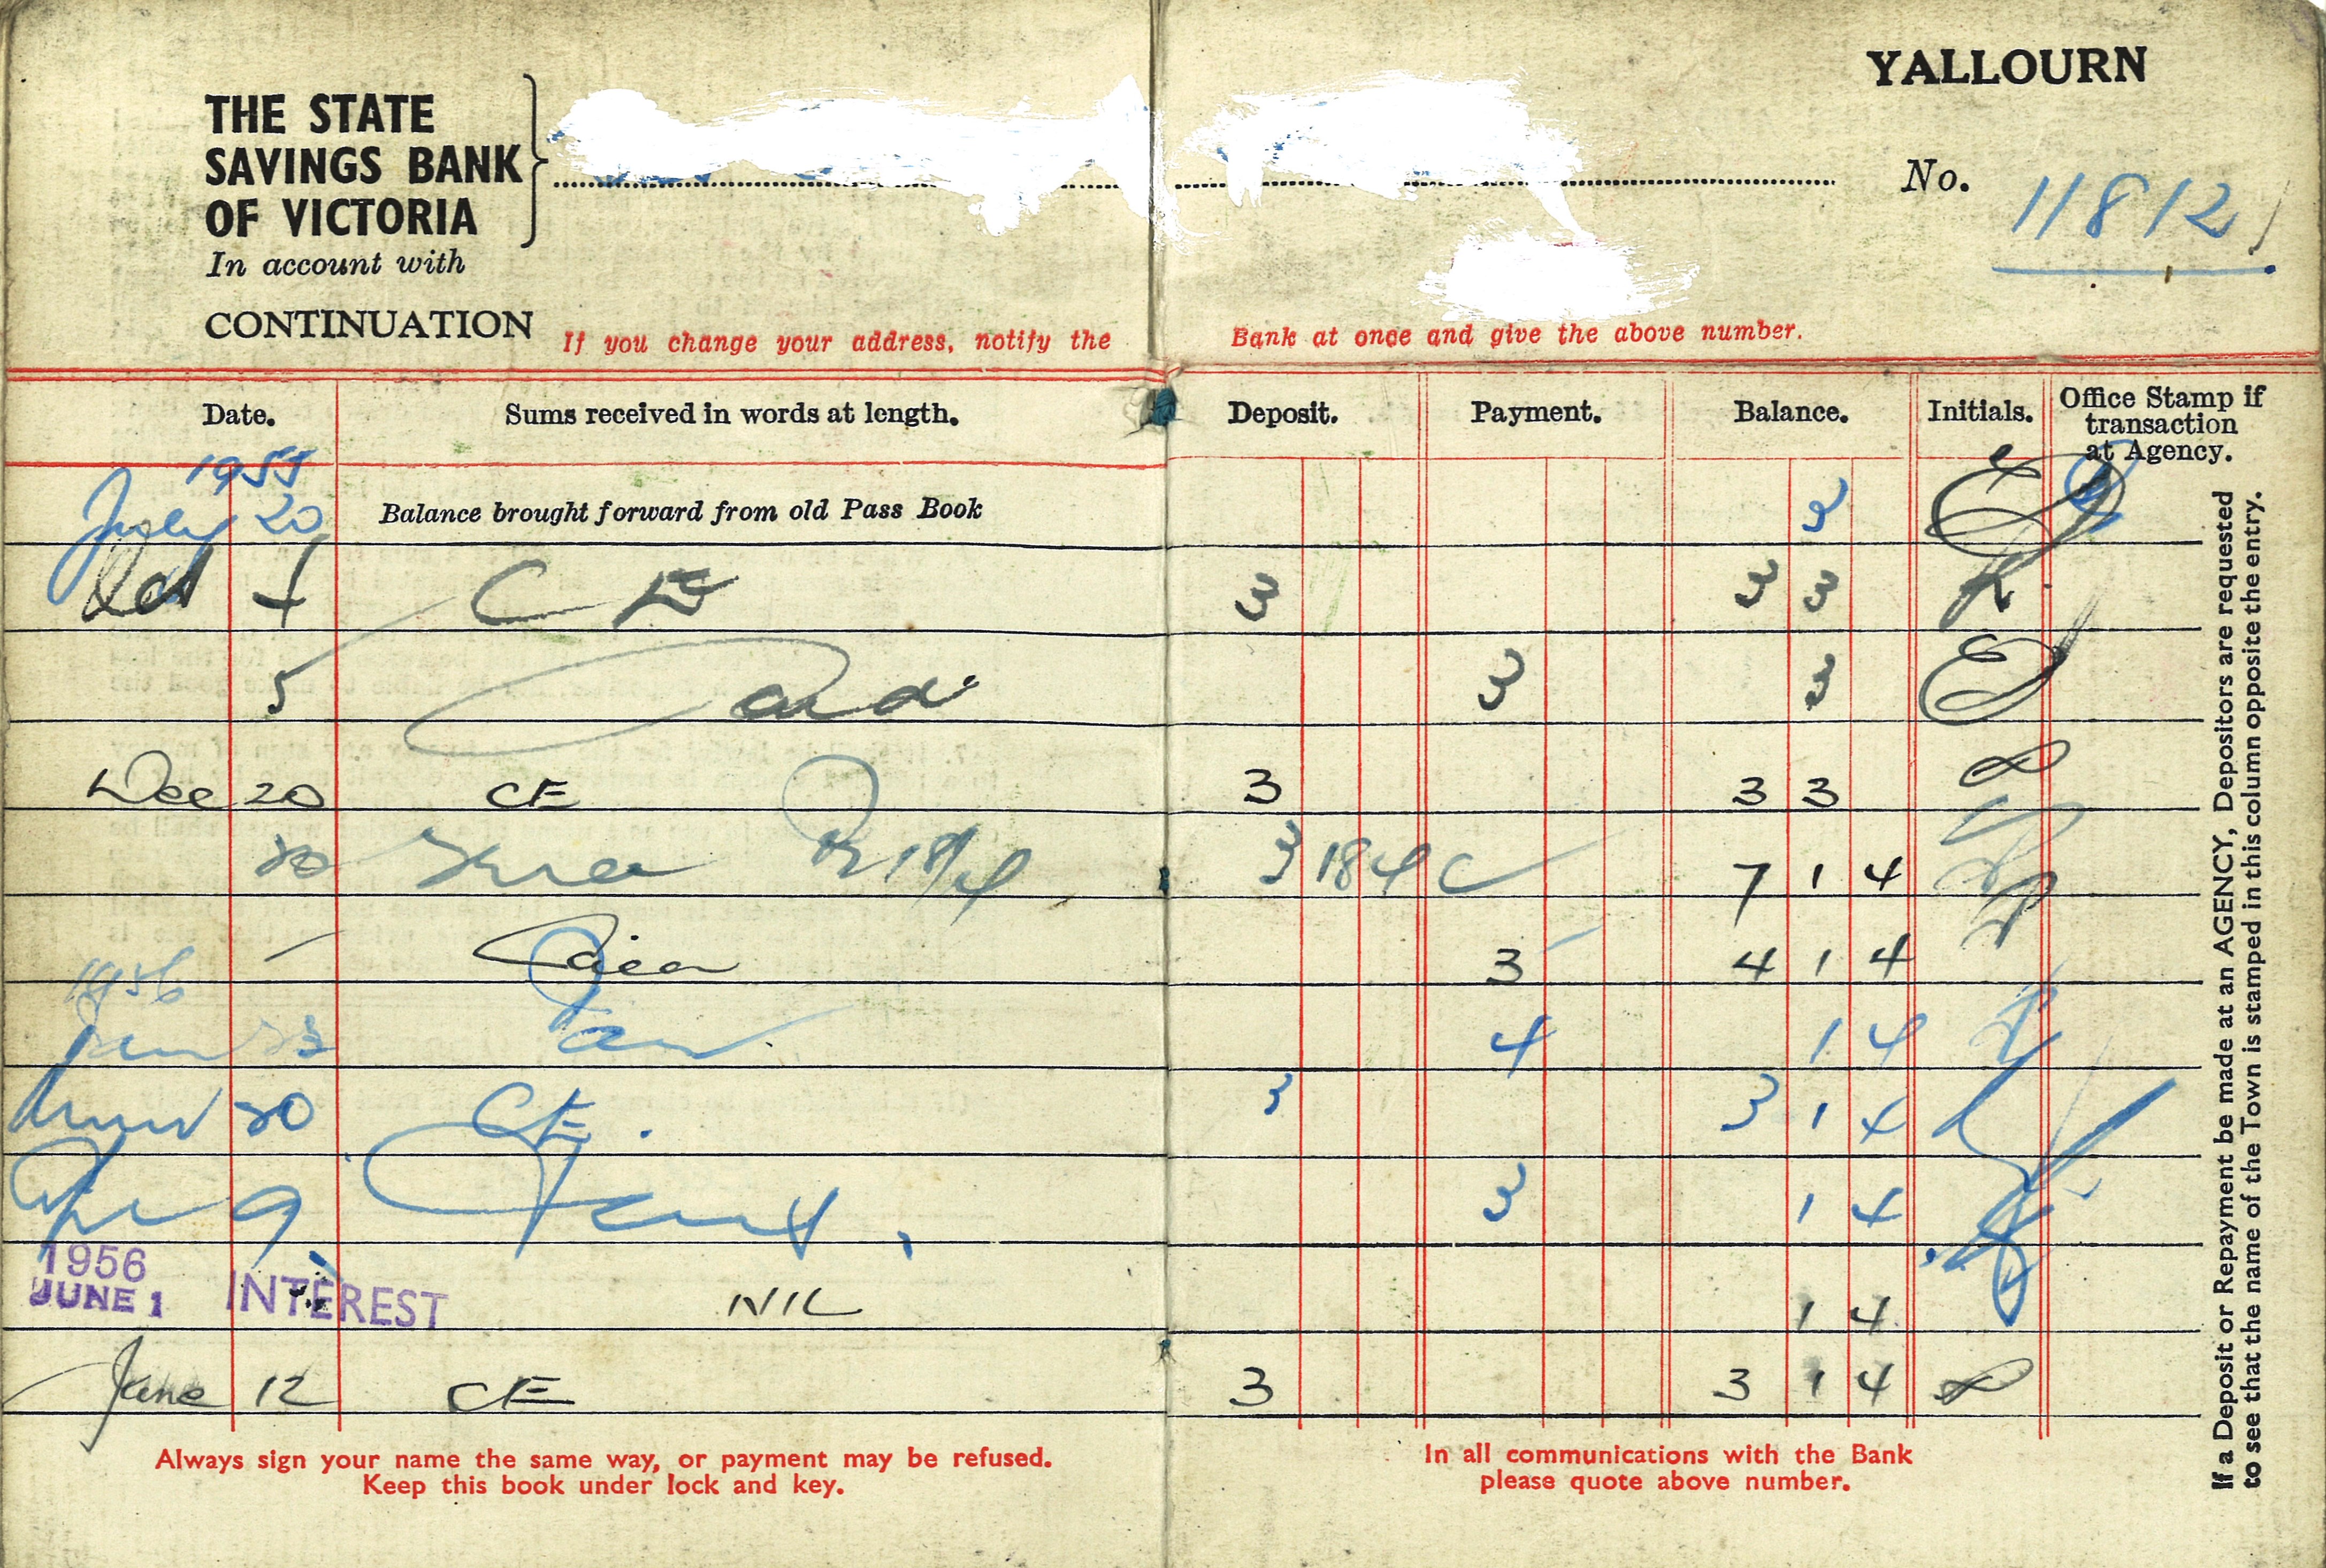 YALLOURN
THE STATE
SAVINGS BANK
OF VICTORIA
In account with
No. 11812
CONTINUATION
If you change your address, notify the Bank at once and give the above number.
Date. Sums received in words at length. Deposit. Payment. Balance. Initials. Office Stamp if transaction at Agency.
1955
July 20 Balance brought forward from old Pass Book 3
Oct 4 CE 3 3 3
5 3 3
Dec 20 CE 3 3 3
20 3 18 4 7 1 4
3 4 1 4
1956
Jan 23 4 1 4
20 CE. 3 3 1 4
9 3 1 4
1956
JUNE 1 INTEREST NIL 1 4
June 12 CE 3 3 1 4
Always sign your name the same way, or payment may be refused.
Keep this book under lock and key.
In all communications with the Bank
please quote above number.
If a Deposit or Repayment be made at an AGENCY, Depositors are requested
to see that the name of the Town is stamped in this column opposite the entry.